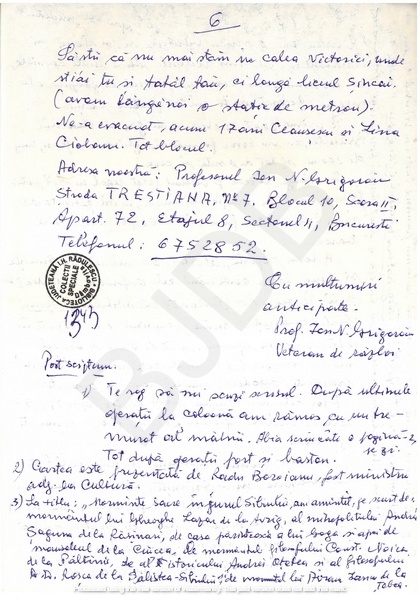 6
Să știi că nu mai stăm pe calea Victoriei, unde
știai tu și tatăl tău, ci lângă liceul Șincai.
(avem lângă noi o stație de metrou).
Ne-a evacuat, acum 17 ani Ceaușescu și Lina
Ciobanu. Tot blocul.
Adresa noastră: Profesorul Ion N. Grigoraiu
Strada TRESTIANA, Nº 7, Blocul 10, Scara II,
Apart. 72, Etajul 8, Sectorul 4, București
Telefonul: 6752852.
BIBLIOTECA JUDEȚEANĂ I.H. RĂDULESCU
COLECȚII
SPECIALE
DÂMBOVIȚA
1343
Cu mulțumiri
anticipate.
Prof. Ion N. Grigoraiu
Veteran de război
Post scriptum.
1) Te rog să mi scuzi scrisul. După ultimele
operații la coloană am rămas cu un tre-
murat al mâinii. Abia scriu câte o pagină-2,
pe zi.
Tot după operații port și baston.
2) Cartea este prezentată de Radu Boroianu, fost ministru
adj. la Cultură.
3) La titlu: „Morminte sacre în jurul Sibiului, am amintit, pe scurt de
mormântul lui Gheorghe Lazăr de la Avrig, al mitropolitului Andrei
Șaguna de la Rășinari, de casa părintească a lui Goga și apoi de
mausoleul de la Ciucea, de mormântul filosofului Const. Noica
de la Păltiniș, de al istoricului Andrei Oțetea și al filosofului
D.D. Roșca de la Săliștea-Sibiului și de mormântul lui
BJDB